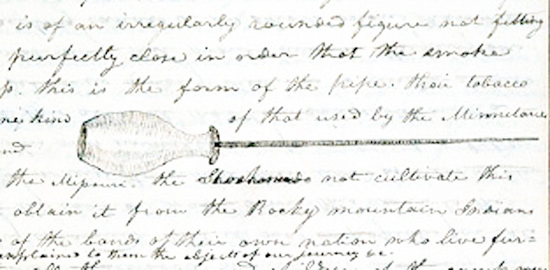 is of an irregularly rounded figure not fitting
purfectly close in order that the smoke
p. this is the form of the pipe. their tobacco
me kind of that used by the Minnetares
nd
the Missouri. the Shoshonees do not cultivate this
obtain it from the Rocky mountain Indians
of the bands of their own nation who live fur=
explained to them the objects of our journey &c.